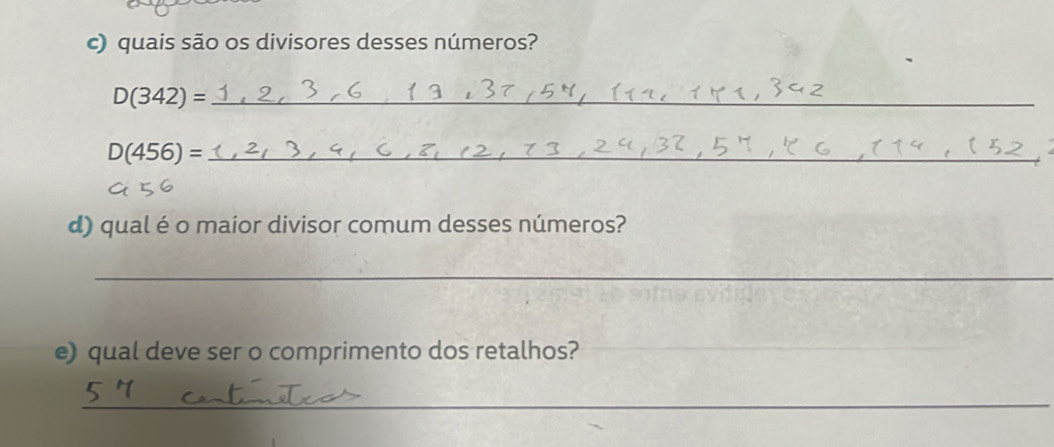 c) quais são os divisores desses números?
D(342) = 1, 2, 3, 6, 19, 38, 57, 114, 171, 342
D(456) = 1, 2, 3, 4, 6, 8, 12, 19, 24, 38, 57, 76, 114, 152,
456
d) qual é o maior divisor comum desses números?
e) qual deve ser o comprimento dos retalhos?
57 centímetros